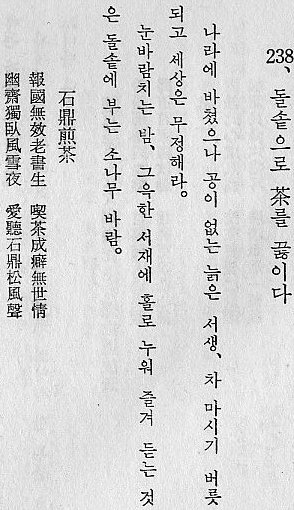 238、돌솥으로 茶를 끓이다
나라에 바쳤으나 공이 없는 늙은 서생、차 마시기 버릇
되고 세상은 무정해라。
눈바람치는 밤、그윽한 서재에 홀로 누워 즐겨 듣는 것
은 돌솥에 부는 소나무 바람。
石鼎煎茶
報國無效老書生 喫茶成癖無世情
幽齋獨臥風雪夜 愛聽石鼎松風聲